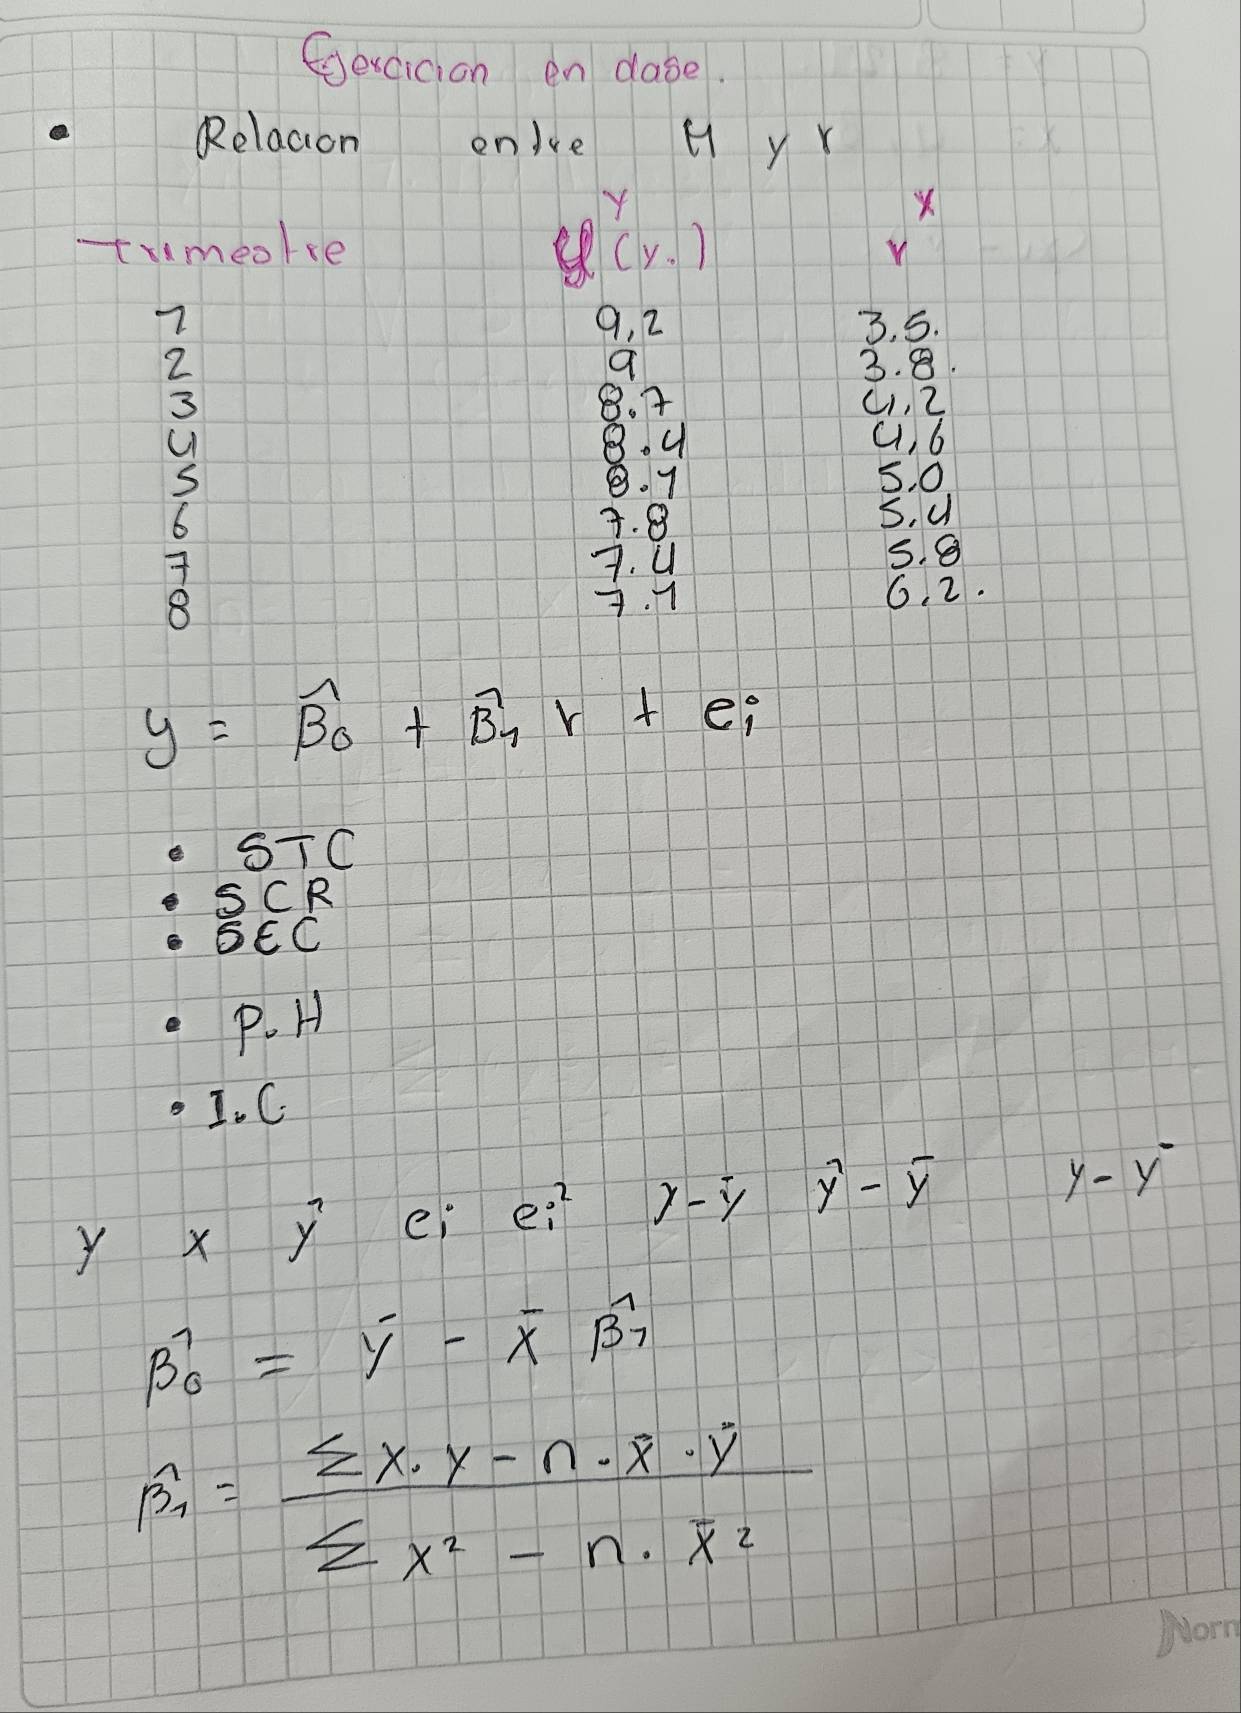 Ejercicion en clase.
• Relacion entre M y r
Y X
trimestre (y.) r
1 9,2 3.5.
2 9 3.8.
3 8.7 4,2
4 8.4 4,6
5 8.1 5.0
6 7.8 5.4
7 7.4 5.8
8 7.1 6,2.
y = β̂0 + β̂1 r + ei
• STC
• SCR
• SEC
• P.H
• I.C.
y x ŷ ei ei² y-ȳ ŷ-ȳ y-ȳ
β̂0 = ȳ - x̄ β̂1
β̂1 = Σ x.y - n . x̄ . ȳ
Σ x² - n . x̄²
Norm